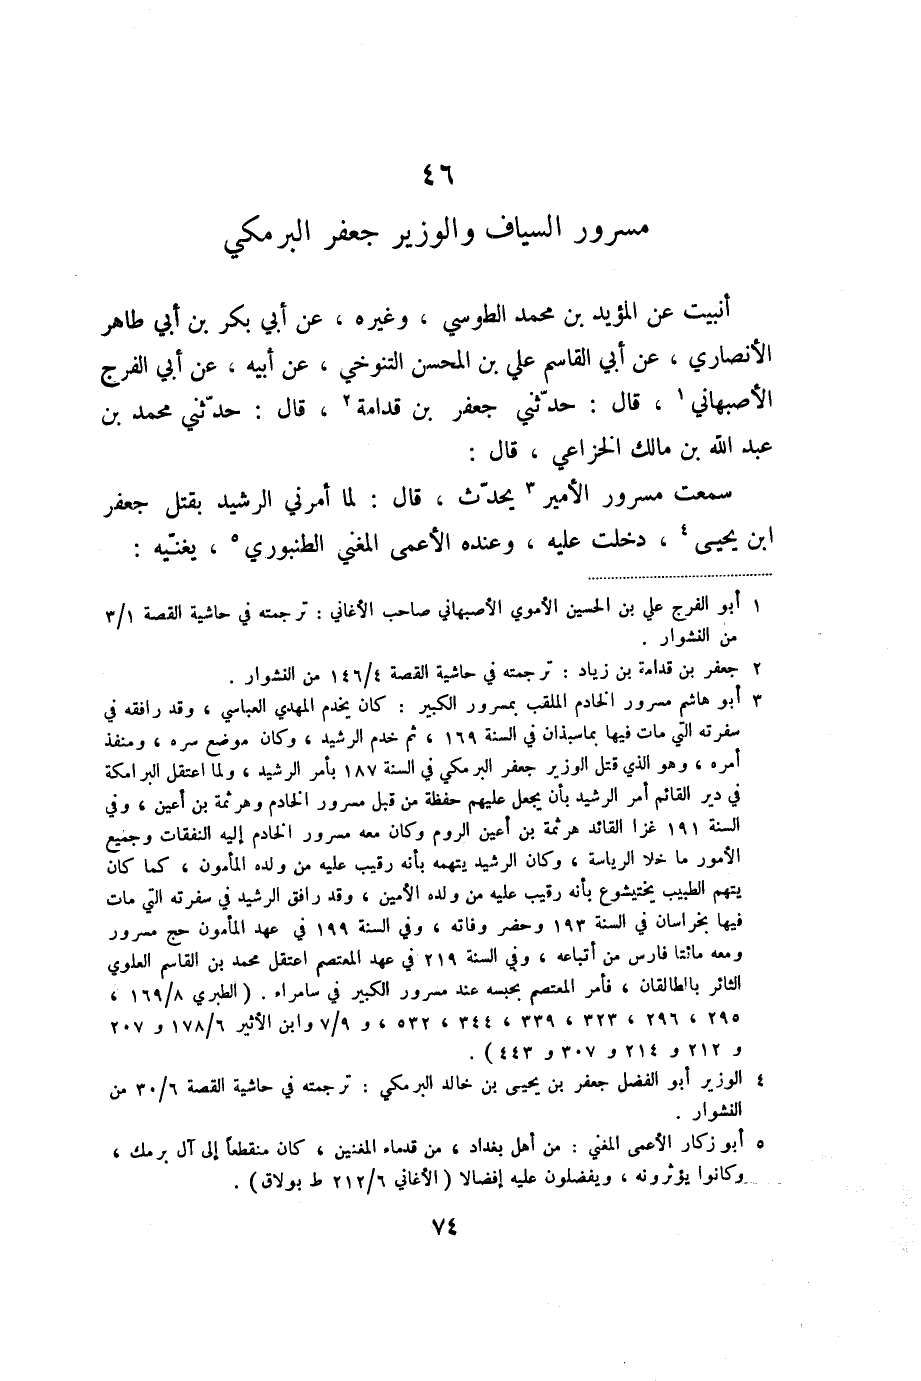 ٤٦
مسرور السياف والوزير جعفر البرمكي
أنبيت عن المؤيد بن محمد الطوسي ، وغيره ، عن أبي بكر بن أبي طاهر
الأنصاري ، عن أبي القاسم علي بن المحسن التنوخي ، عن أبيه ، عن أبي الفرج
الأصبهاني ١ ، قال : حدّثني جعفر بن قدامة ٢ ، قال : حدّثني محمد بن
عبد الله بن مالك الخزاعي ، قال :
سمعت مسرور الأمير ٣ يحدّث ، قال : لما أمرني الرشيد بقتل جعفر
ابن يحيى ٤ ، دخلت عليه ، وعنده الأعمى المغني الطنبوري ٥ ، يغنّيه :
١ أبو الفرج علي بن الحسين الأموي الأصبهاني صاحب الأغاني : ترجمته في حاشية القصة ٣/١
من النشوار .
٢ جعفر بن قدامة بن زياد : ترجمته في حاشية القصة ١٤٦/٤ من النشوار .
٣ أبو هاشم مسرور الخادم الملقب بمسرور الكبير : كان يخدم المهدي العباسي ، وقد رافقه في
سفرته التي مات فيها بماسبذان في السنة ١٦٩ ، ثم خدم الرشيد ، وكان موضع سره ، ومنفذ
أمره ، وهو الذي قتل الوزير جعفر البرمكي في السنة ١٨٧ بأمر الرشيد ، ولما اعتقل البرامكة
في دير القائم أمر الرشيد بأن يجعل عليهم حفظة من قبل مسرور الخادم وهرثمة بن أعين ، وفي
السنة ١٩١ غزا القائد هرثمة بن أعين الروم وكان معه مسرور الخادم إليه النفقات وجميع
الأمور ما خلا الرياسة ، وكان الرشيد يتهمه بأنه رقيب عليه من ولده المأمون ، كما كان
يتهم الطبيب بختيشوع بأنه رقيب عليه من ولده الأمين ، وقد رافق الرشيد في سفرته التي مات
فيها بخراسان في السنة ١٩٣ وحضر وفاته ، وفي السنة ١٩٩ في عهد المأمون حج مسرور
ومعه مائتا فارس من أتباعه ، وفي السنة ٢١٩ في عهد المعتصم اعتقل محمد بن القاسم العلوي
الثائر بالطالقان ، فأمر المعتصم بحبسه عند مسرور الكبير في سامراء . (الطبري ١٦٩/٨ ،
٢٩٥ ، ٢٩٦ ، ٣٢٣ ، ٣٣٩ ، ٣٤٤ ، ٥٣٢ ، و ٧/٩ وابن الأثير ١٧٨/٦ و ٢٠٧
و ٢١٢ و ٢١٤ و ٣٠٧ و ٤٤٣) .
٤ الوزير أبو الفضل جعفر بن يحيى بن خالد البرمكي : ترجمته في حاشية القصة ٣٠/٦ من
النشوار .
٥ أبو زكار الأعمى المغني : من أهل بغداد ، من قدماء المغنين ، كان منقطعاً إلى آل برمك ،
وكانوا يؤثرونه ، ويفضلون عليه إفضالا (الأغاني ٢١٢/٦ ط بولاق) .
٧٤